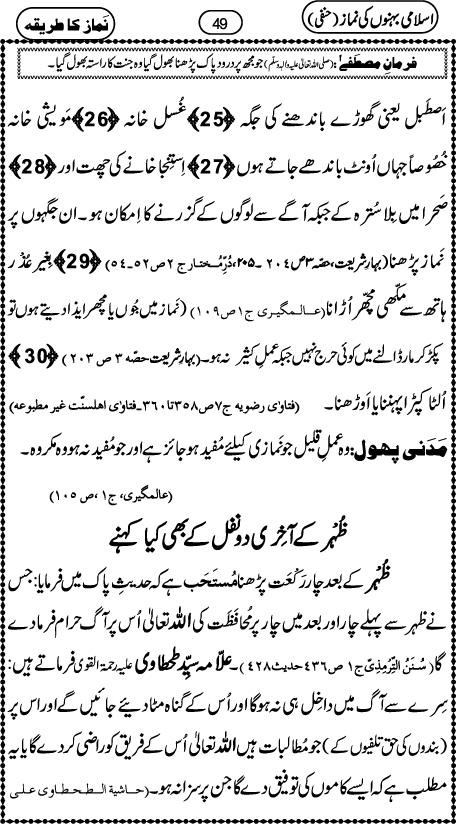 اسلامی بہنوں کی نماز (حنفی)
49
نماز کا طریقہ
فرمانِ مصطفےٰ: (صلی اللہ تعالیٰ علیہ والہٖ وسلّم) جو مجھ پر درودِ پاک پڑھنا بھول گیا وہ جنت کا راستہ بھول گیا۔
اصطبل یعنی گھوڑے باندھنے کی جگہ ﴿25﴾ غُسل خانہ ﴿26﴾ مَویشی خانہ
خُصُوصاً جہاں اُونٹ باندھے جاتے ہوں ﴿27﴾ اِستِنجا خانے کی چھت اور ﴿28﴾
صَحرا میں بِلا سُترہ کے جبکہ آگے سے لوگوں کے گزرنے کا اِمکان ہو۔ ان جگہوں پر
نَماز پڑھنا (بہارِ شریعت، حصّہ ۳ ص ۲۰۴ ۔ ۲۰۵، دُرِّمُختار ج ۲ ص ۵۲۔۵۴) ﴿29﴾ بِغیر عُذر
ہاتھ سے مکّھی مچّھر اُڑانا (عالمگیری ج ۱ ص ۱۰۹) (نَماز میں جُوں یا مچّھر ایذا دیتے ہوں تو
پکڑ کر مار ڈالنے میں کوئی حرج نہیں جبکہ عملِ کثیر نہ ہو۔ (بہارِ شریعت حصّہ ۳ ص ۲۰۳) ﴿30﴾
اُلٹا کپڑا پہننا یا اَوڑھنا۔ (فتاوٰی رضویہ ج ۷ ص ۳۵۸ تا ۳۶۰۔ فتاوٰی اھلسنّت غیر مطبوعہ)
مَدَنی پھول: وہ عملِ قلیل جو نَمازی کیلئے مُفید ہو جائز ہے اور جو مُفید نہ ہو وہ مکروہ۔
(عالمگیری، ج ۱، ص ۱۰۵)
ظُہر کے آخِری دو نفل کے بھی کیا کہنے
ظُہر کے بعد چار رَکْعَت پڑھنا مُستَحَب ہے کہ حدیثِ پاک میں فرمایا: جس
نے ظہر سے پہلے چار اور بعد میں چار پر مُحافَظَت کی اللہ تعالیٰ اُس پر آگ حرام فرمادے
گا (سُنَنُ التِّرمِذِیّ ج ۱ ص ۴۳۶ حدیث ۴۲۸)۔ علّامہ سیِّد طَحطاوی علیہ رحمۃ القوی فرماتے ہیں:
سِرے سے آگ میں داخِل ہی نہ ہوگا اور اُس کے گناہ مٹا دیئے جائیں گے اور اس پر
(بندوں کی حق تلفیوں کے) جو مُطالبات ہیں اللہ تعالیٰ اُس کے فریق کو راضی کردے گا یا یہ
مطلب ہے کہ ایسے کاموں کی توفیق دے گا جن پر سزا نہ ہو۔ (حاشیۃ الطحطاوی علی